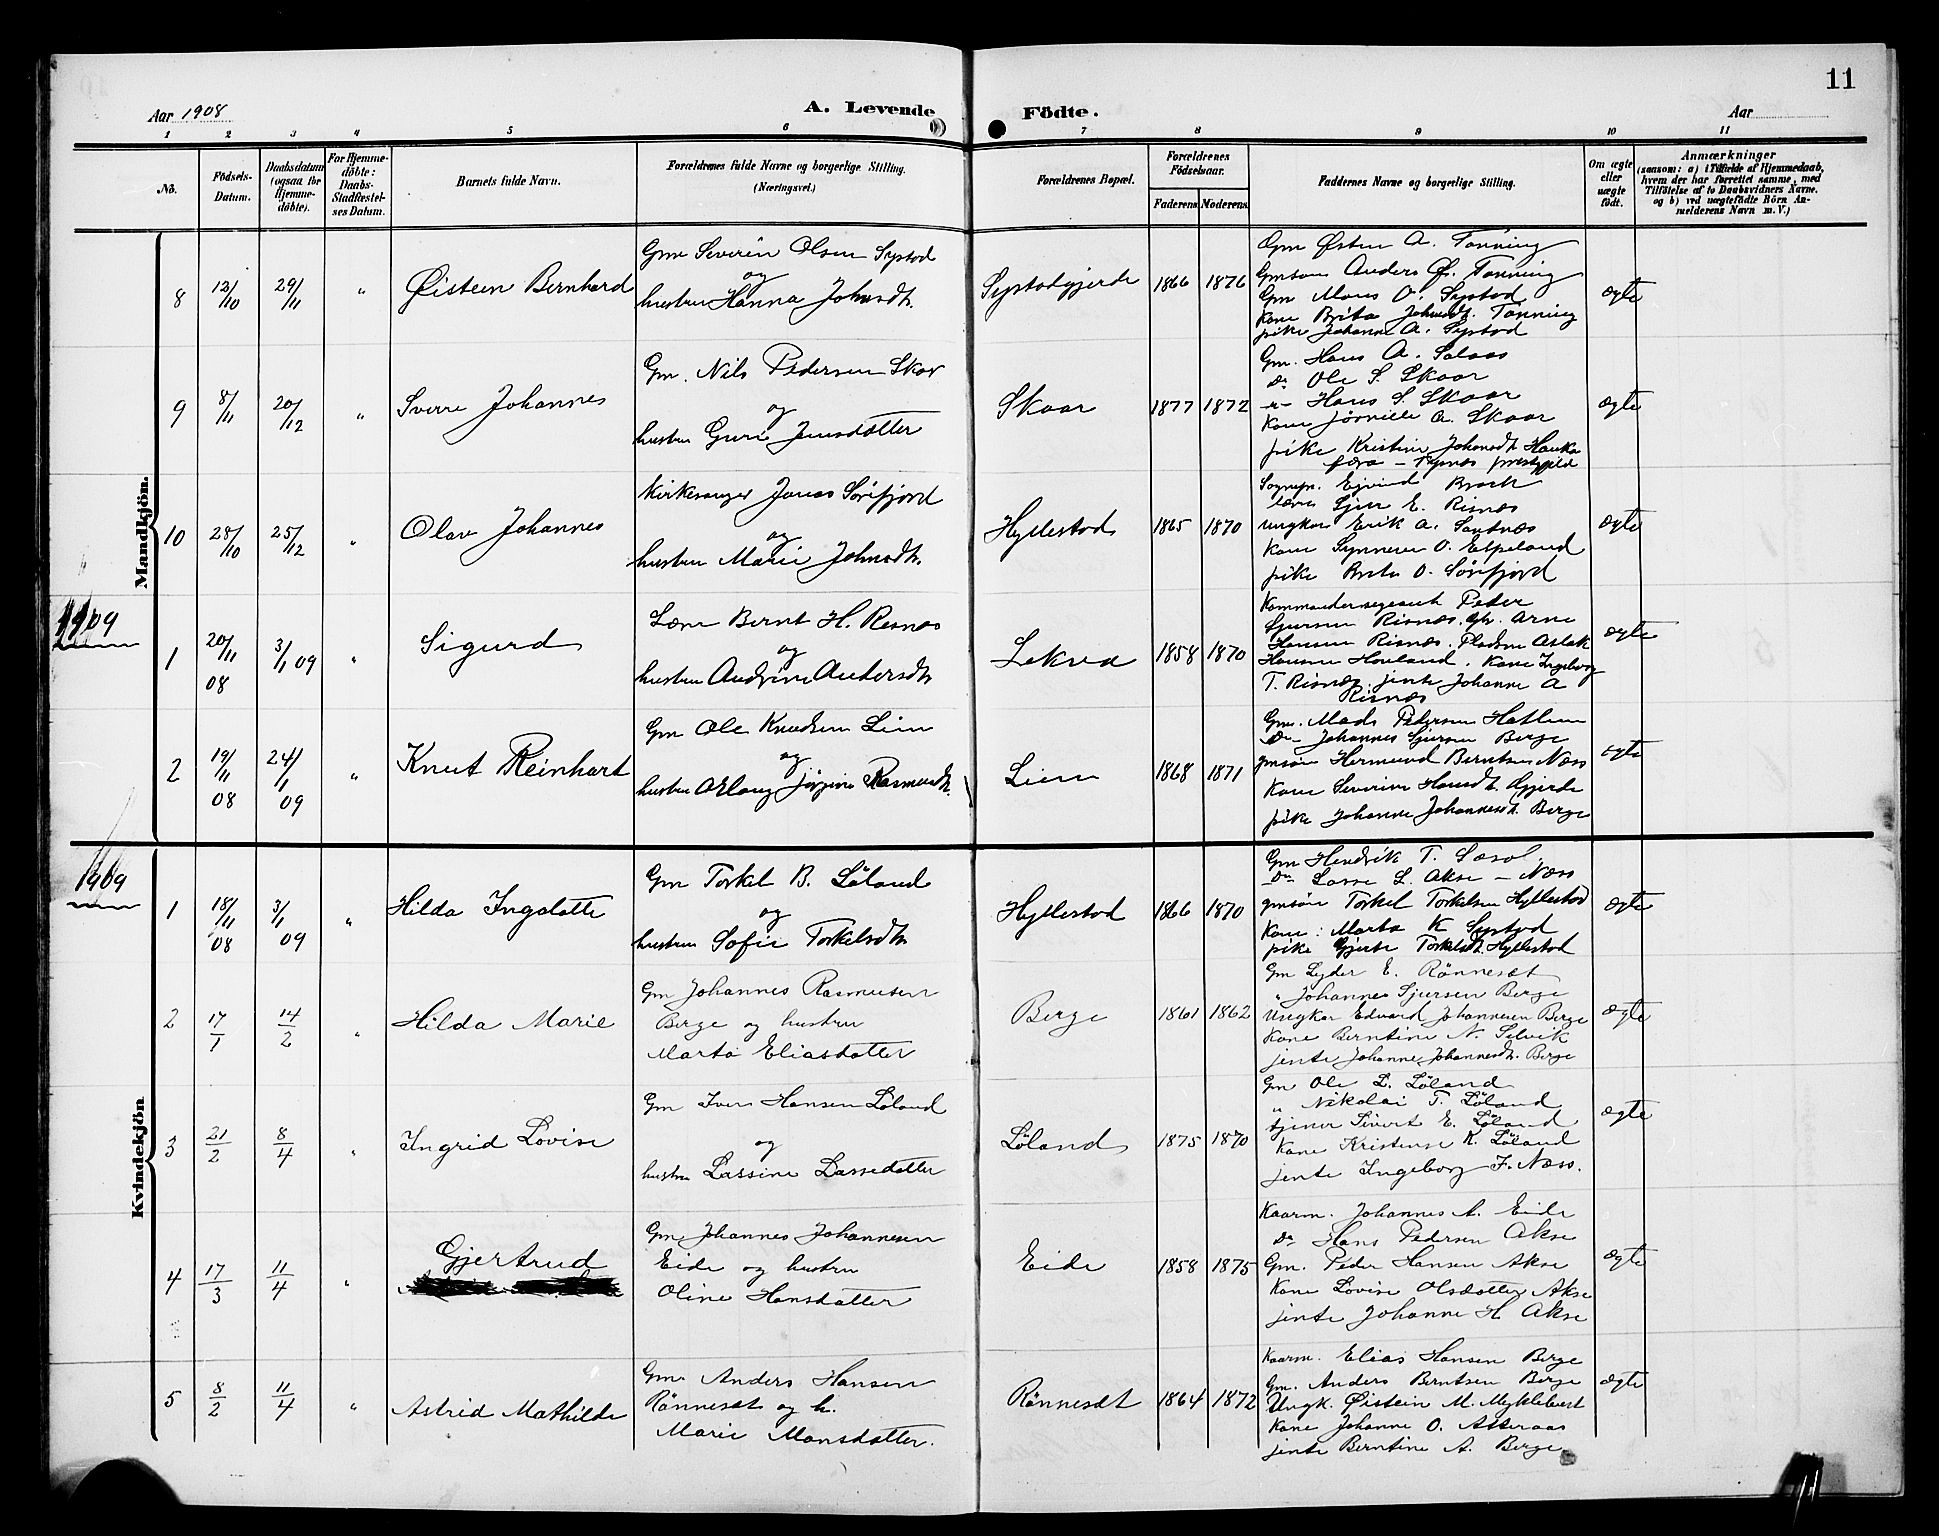 11
Aar 1908
A. Levende
Födte.
Aar
1 2 3 4 5 6 7 8 9 10 11
No.
Födsels-
Datum.
Daabsdatum
(ogsaa for
Hjemme-
döbte).
For Hjemme-
döbte:
Daabs-
Stadfæstel-
ses Datum.
Barnets fulde Navn.
Forældrenes fulde Navne og borgerlige Stilling.
(Næringsvei.)
Forældrenes Bopæl.
Forældrenes
Födselsaar.
Faderens. Moderens.
Faddernes Navne og borgerlig Stilling.
Om ægte
eller
uægte
födt.
Anmærkninger
(saasom: a) i Tilfælde af Hjemmedaab,
hvem der har forrettet samme, med
Tilföielse af to Daabsvidners Navne.
og b) ved uægtefödte Börn An-
melderens Navn m. V.)
Mandkjön.
8 13/10 29/11 " Øisteen Bernhard
Gm Severin Olsen Systad
og
hustru Hanna Johnsdtr
Systadgjerde 1866 1876
Gm Østen A. Tønning
Gmsøn Anders Ø. Tønning
Gm Mons O. Systad
Kone Brita Johnsdt. Tønning
pike Johanne A. Systad
ægte
9 8/11 20/12 " Sverre Johannes
Gm. Nils Pedersen Skor
og
hustru Guri Jensdatter
Skaar 1877 1872
Gm. Hans A. Salaas
Do Ole S. Skaar
" Hans S. Skaar
Kone A. Skaar
pike Kristine Johansdt
ægte
10 28/10 25/12 " Olav Johannes
Kirkesanger Jonas Sörefjord
og
hustru Marie Johnsdtr.
Hyllestad 1865 1870
Sogn.pr. Ejvind
E. Risnæs
ungkar Erik A. Sandnæs
Kone Synneva O. Espeland
pike Brita O. Sörefjord
ægte
1909
1 20/11 08 3/1 09 " Sigurd
Bernt H. Risnæs
og
hustru Andrine Andersdtr
Lekva 1858 1870
Kommandersergeant Peder
Sjursen Risnæs, Arne
Hansen Risnæs, Aslak
Hansen Hovland. Kone Ingeborg
T. Risnæs, jente Johanne A
Risnæs
ægte
2 19/11 08 24/1 09 " Knut Reinhart
Gm Ole Knudsen Lien
og
hustru Aslaug Jörgine Rasmusdtr.
Lien 1868 1871
Gm. Mads Pedersen Hatlem
Do Johannes Sjursen Berge
gmsön Hermund Berntsen Næss
Kone Severine Hansdt. Gjerde
pike Johanne Johannesdt. Berge
ægte
1909
Kvindekjön
1 18/11 08 3/1 09 " Hilda Ingolotte
Gm Torkel B. Löland
og
hustru Sofie Torkelsdtr
Hyllestad 1866 1870
Gm Hendrik T. Sæsol.
Do Lasse L. Akse – Næss
gmsön Torkel Torkelsen Hyllestad
Kone: Marta K Systad
pike Gjerte Torkelsdt. Hyllestad
ægte
2 17/1 14/2 " Hilda Marie
Gm Johannes Rasmusen
Berge og hustru
Marta Eliasdatter
Berge 1861 1862
Gm Lyder E. Rönneset
" Johannes Sjursen Berge
Ungkar Edvard Johannesen Berge
Kone Berntine N. Selvik
jente Johanne Johannesdt. Berge
ægte
3 21/2 8/4 " Ingrid Lovise
Gm Iver Hansen Löland
og
hustru Lassine Lassedatter
Löland 1875 1870
Gm Ole L. Löland
" Nikolai T. Löland
tjener Sivert E. Löland
Kone Kristense K. Löland
jente Ingeborg F. Næss.
ægte
4 17/3 11/4 " Gjertrud
Gm Johannes Johannesen
Eide og hustru
Oline Hansdatter
Eide 1858 1875
Kaarm. Johannes A. Eide
Do Hans Pedersen Akse
Gm. Peder Hansen Akse
Kone Lovise Olsdatter Akse
jente Johanne H Akse
ægte
5 8/2 11/4 " Astrid Mathilde
Gm. Anders Hansen
Rönneset og h.
Marie Monsdatter.
Rönneset 1864 1872
Kaarm. Elias Hansen Berge
Gm. Anders Berntsen Berge
Ungk. Øistein M. Myklebust
Kone Johanne O. Atteraas
jente Berntine A. Berge
ægte